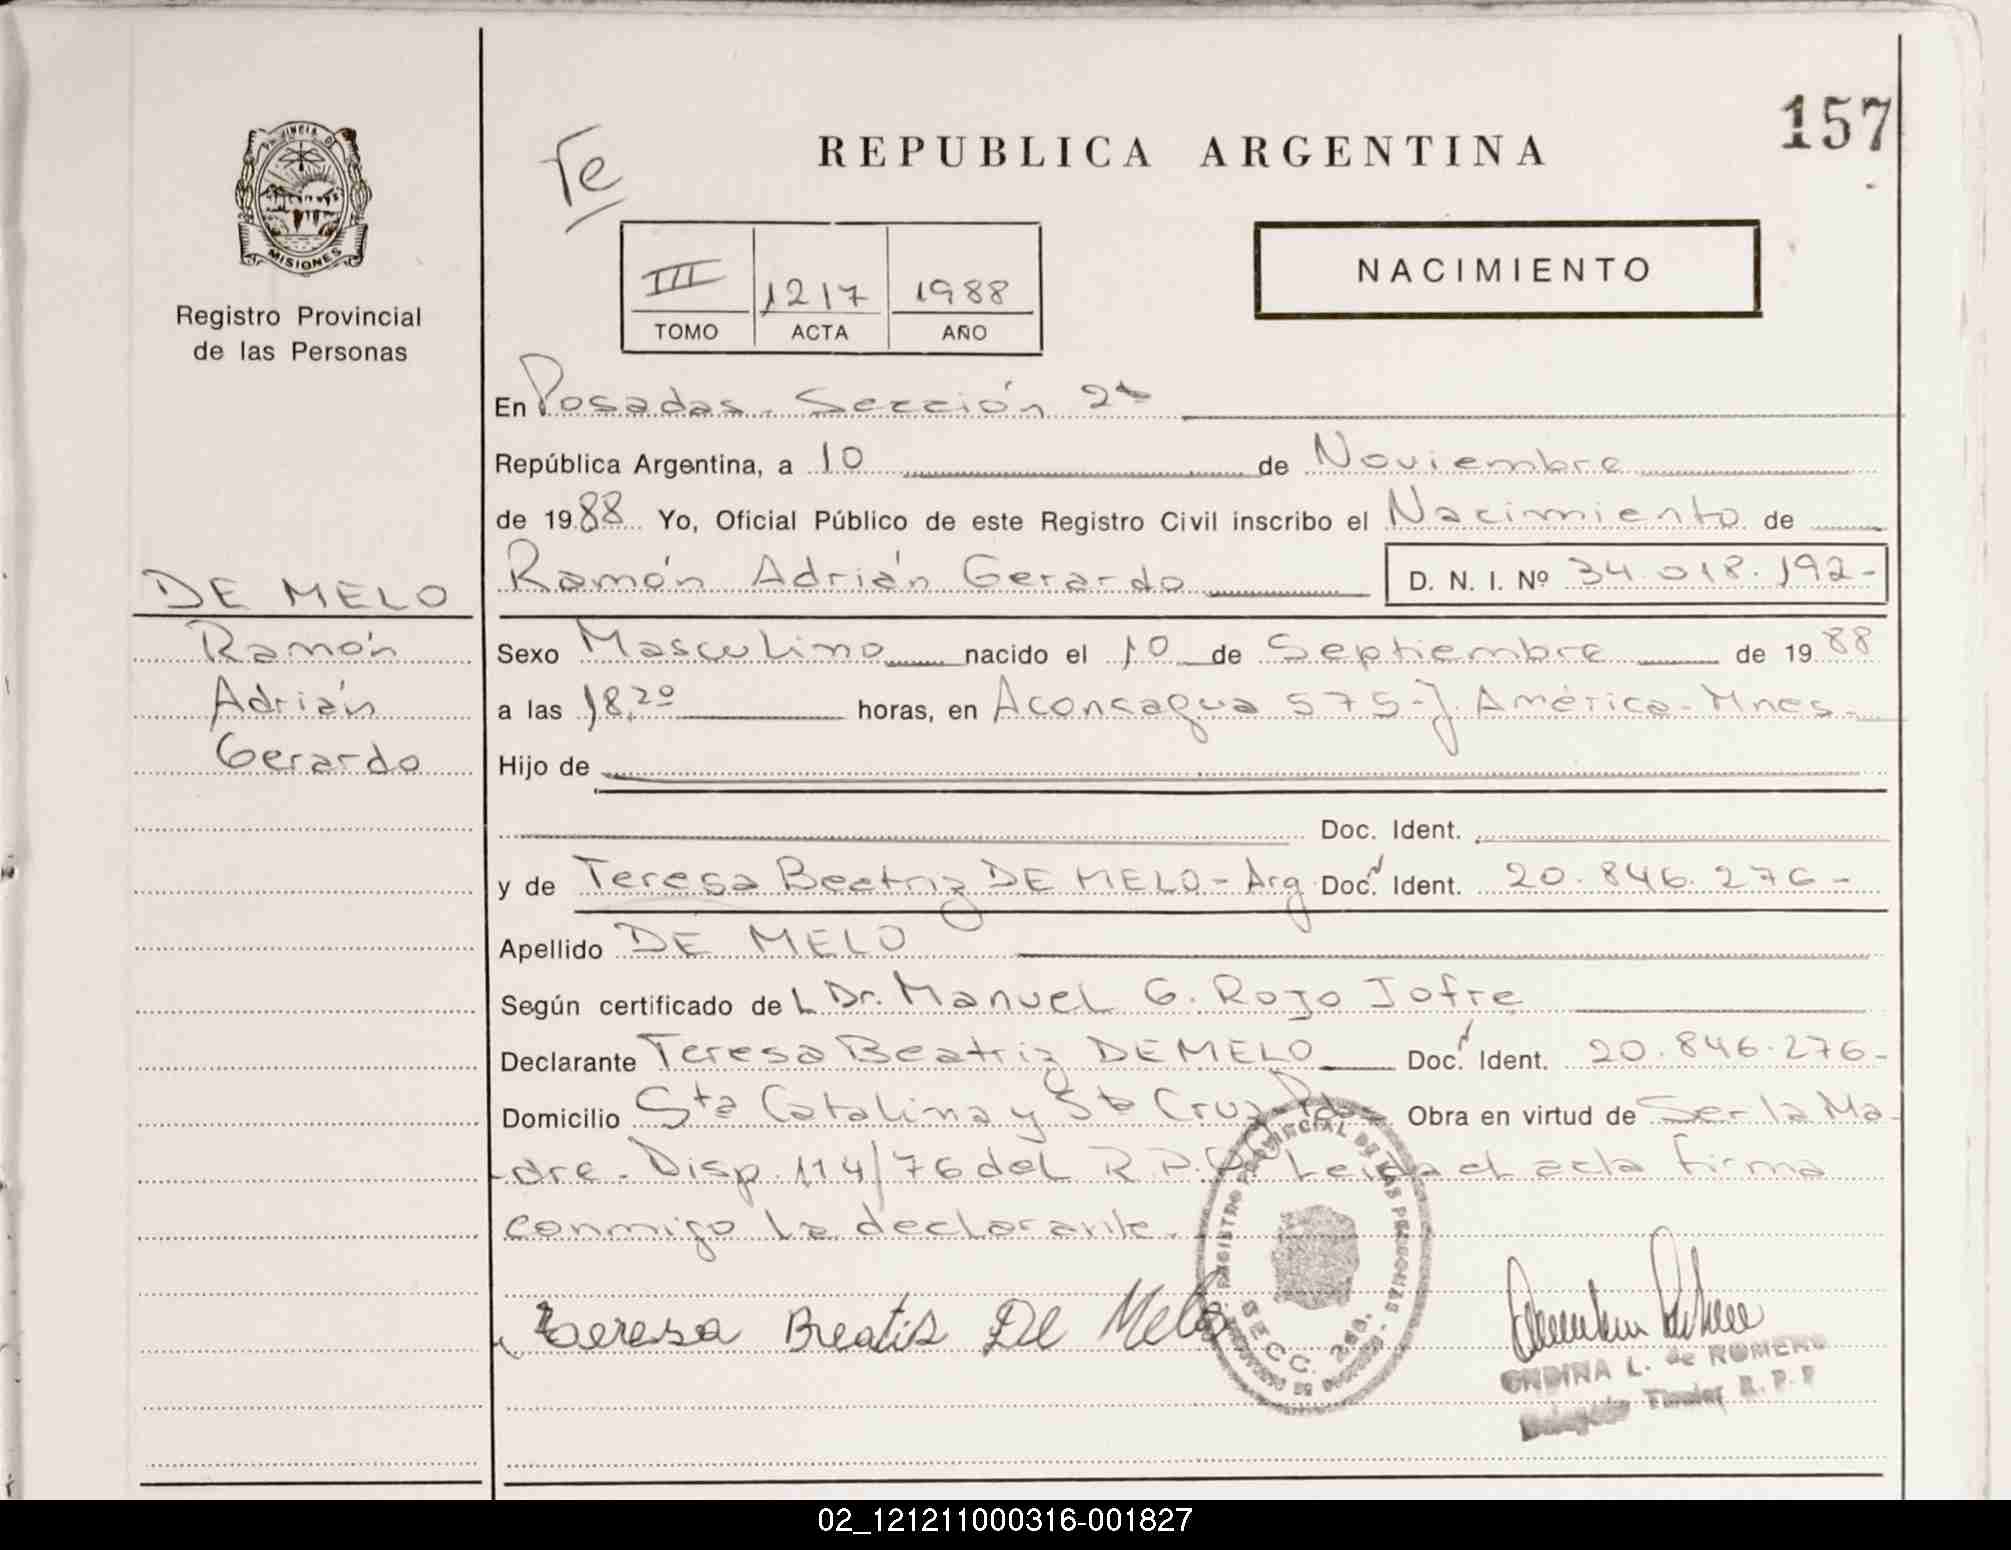 157
Te
REPUBLICA ARGENTINA
PROVINCIA DE
MISIONES
Registro Provincial
de las Personas
III 1217 1988
TOMO ACTA AÑO
NACIMIENTO
En Posadas. Sección 2ª
República Argentina, a 10 de Noviembre
de 1988 Yo, Oficial Público de este Registro Civil inscribo el Nacimiento de
Ramón Adrián Gerardo D. N. I. Nº 34.018.192-
DE MELO
Ramón
Adrián
Gerardo
Sexo Masculino nacido el 10 de Septiembre de 1988
a las 18,20 horas, en Aconcagua 575-J. América-Mnes-
Hijo de
Doc. Ident.
y de Teresa Beatriz DE MELO-Arg. Doc. Ident. 20.846.276-
Apellido DE MELO
Según certificado del Dr. Manuel G. Rojo Jofre
Declarante Teresa Beatriz DE MELO Doc. Ident. 20.846.276-
Domicilio Sta Catalina y Sta Cruz-Pdas. Obra en virtud de Ser la Ma-
-dre. Disp. 114/76 del R.P.P. Leida el acta firma
conmigo la declarante.
Teresa Breatis De Melo
REGISTRO PROVINCIAL DE LAS PERSONAS
SECC. 2da.
ONDINA L. de ROMERO
Delegado Titular R.P.P
02_121211000316-001827